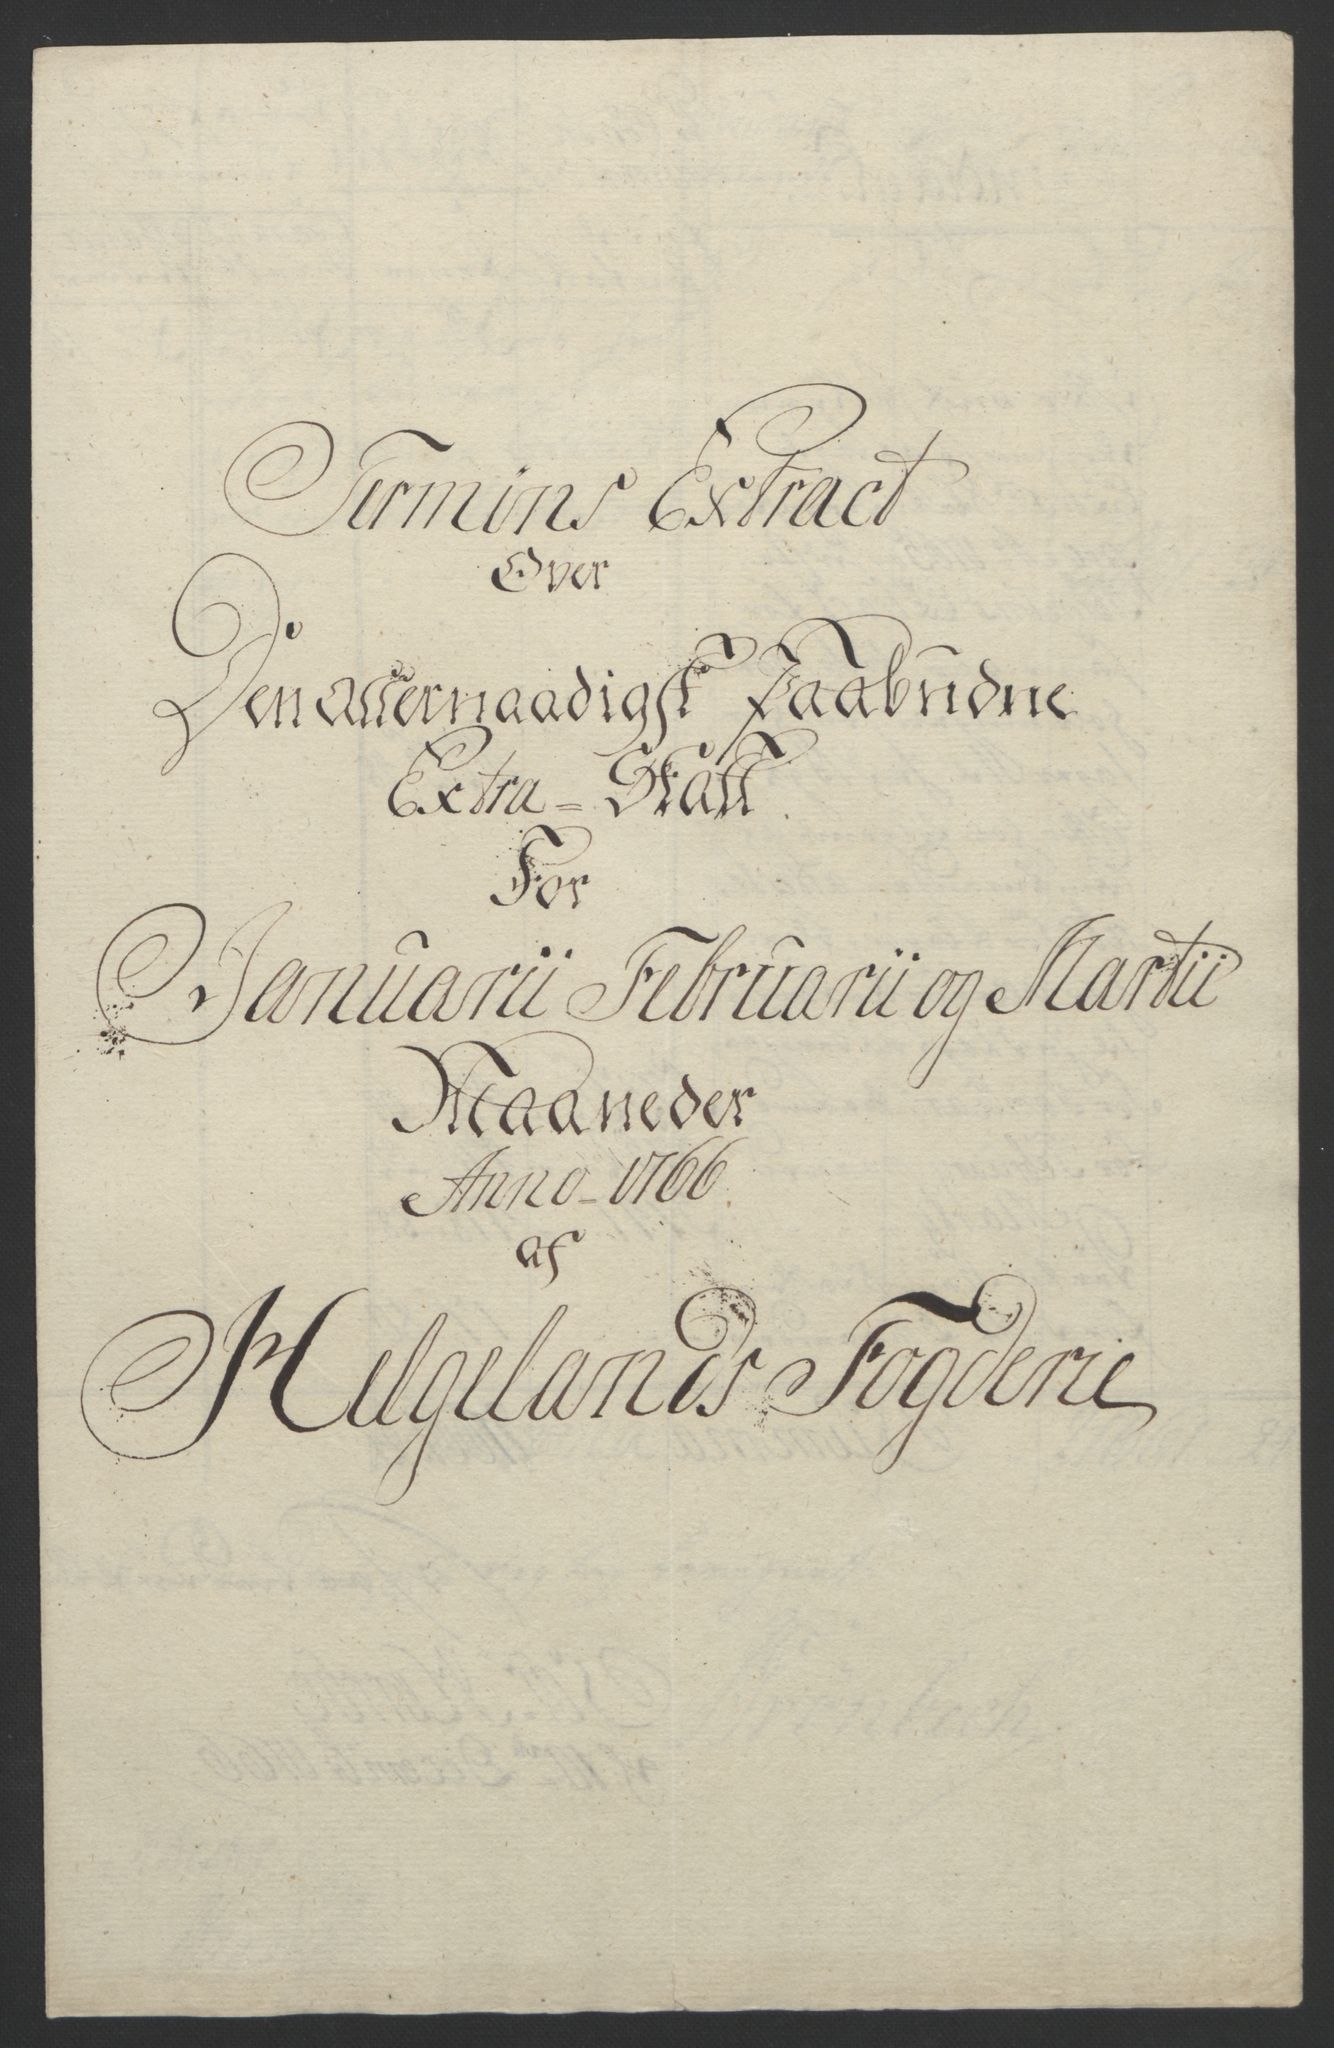 Termins Extract
Over
Den allernaadigst Paabudne
Extra-Skatt
For
Januarii Februarii og Martii
Maaneder
Anno-1766.
af
Helgelands Fogderie